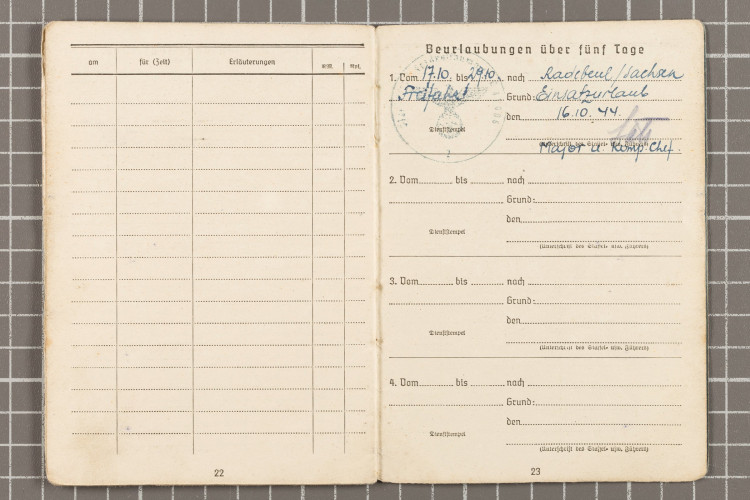 am für (Zeit) Erläuterungen RM. Rpf.
22
Beurlaubungen über fünf Tage
1. Vom 17.10. bis 29.10. nach Radebeul/Sachsen
Freifahrt Grund: Einsatzurlaub
den 16.10.44.
Dienststempel
Major u. Komp.Chef.
2. Vom bis nach
Grund:
den
Dienststempel
(Unterschrift des Staffel- usw. Führers)
3. Vom bis nach
Grund:
den
Dienststempel
(Unterschrift des Staffel- usw. Führers)
4. Vom bis nach
Grund:
den
Dienststempel
(Unterschrift des Staffel- usw. Führers)
23